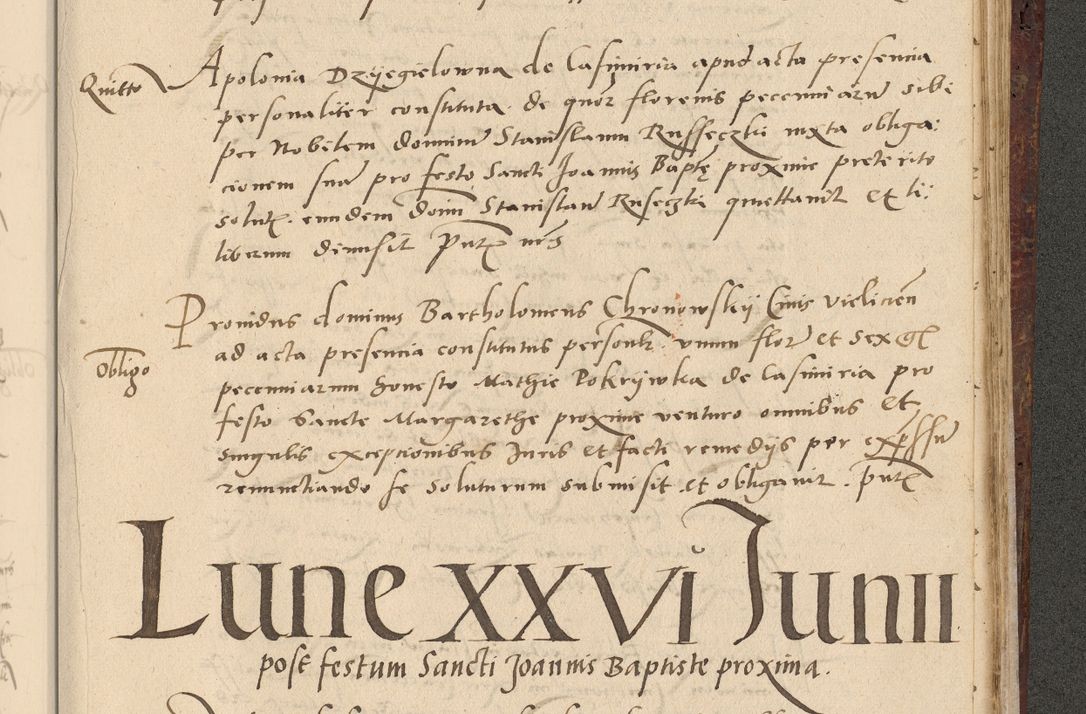 Quitto
Apolonia Dzyegielowna de Casimiria apud acta presencia
personaliter constituta de quor florenis pecuniarũ sibi
per Nobilem dominũ Stanislaum Russeczki iuxta obliga:
cionem suã pro festo Sancti Joannis Baptę proxime preterito
solut. eundem doim Stanislaũ Ruseczki quiettavit Et li:
liberum dimisit Pñt n͂rs
Providus dominus Bartholomeus Chronowskij Civis Vieliciẽn
Obligo
ad acta presencia constitutus personlr. unum flor et sex gl
pecuniarum honesto Mathie Pokrzywka de Casimiria pro
festo Sancte Margarethe proxime venturo omnibus Et
singulis exceptionibus Juris et facti remedijs per expssũ
renunctiando se soluturum submisit et obligavit. Pñt
Lune XXVI Junii
post festum Sancti Joannis Baptiste proxima.